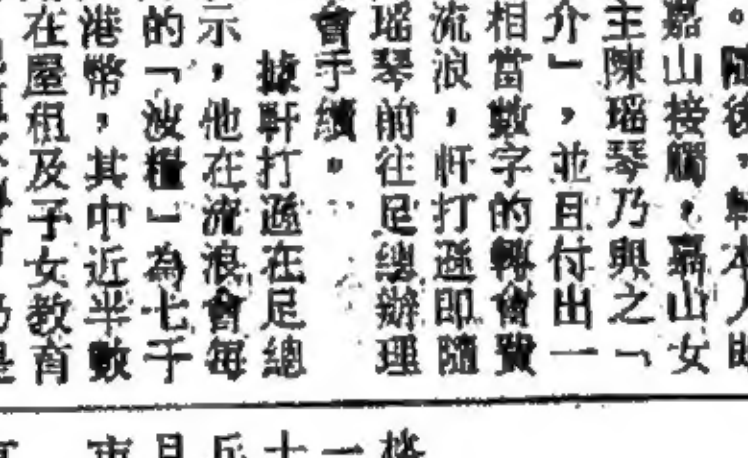 。隨後，軒本人即
嘉山接觸，嘉山女
主陳瑤琴乃與之「
介」，並且付出一
相當數字的轉會費
流浪，軒打遜即隨
瑤琴前往足總辦理
會手續。
據軒打遜在足總
示，他在流浪會每
的「波糧」為七千
港幣，其中近半數
在屋租及子女教育